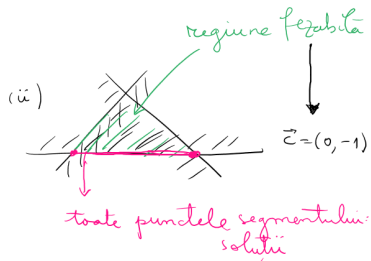 regiune fezabilă
(ii)
c⃗=(0,-1)
toate punctele segmentului:
soluții